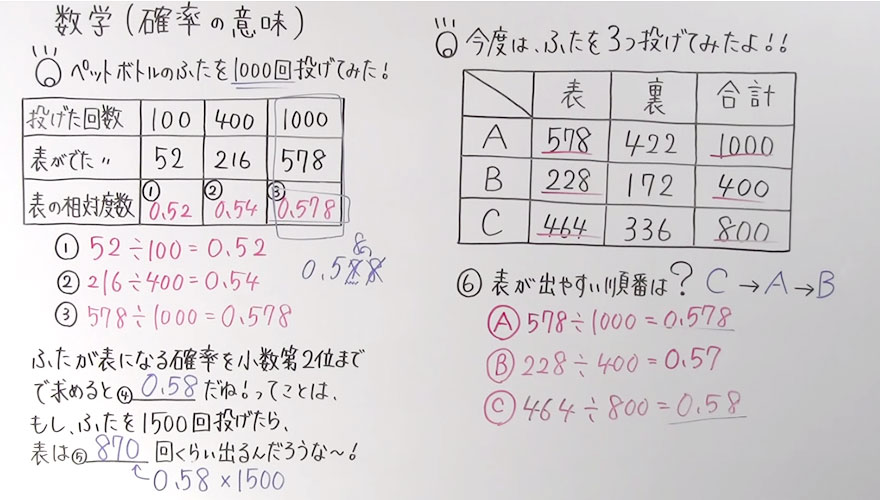 数学(確率の意味)
ペットボトルのふたを1000回投げてみた!
投げた回数 100 400 1000
表がでた 〃 52 216 578
表の相対度数 ①0.52 ②0.54 ③0.578
① 52÷100=0.52
② 216÷400=0.54
③ 578÷1000=0.578
8
0.578
ふたが表になる確率を小数第2位まで
で求めると④ 0.58 だね!ってことは、
もし、ふたを1500回投げたら、
表は⑤ 870 回くらい出るんだろうな〜!
0.58×1500
今度は、ふたを3つ投げてみたよ!!
表 裏 合計
A 578 422 1000
B 228 172 400
C 464 336 800
⑥ 表が出やすい順番は? C→A→B
Ⓐ 578÷1000=0.578
Ⓑ 228÷400=0.57
Ⓒ 464÷800=0.58